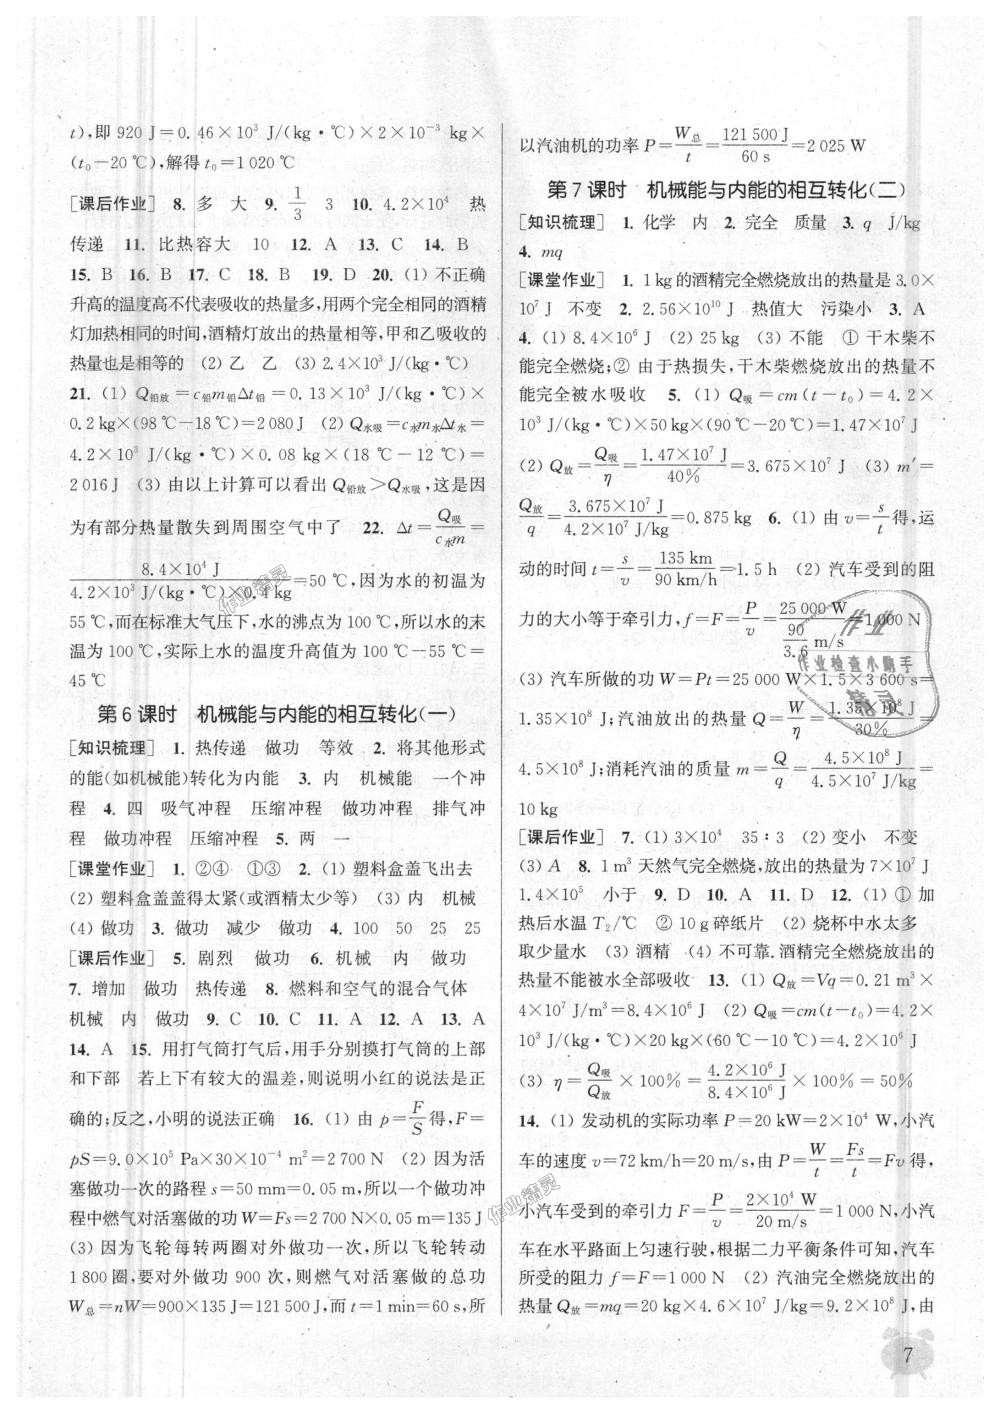 t),即 920 J=0.46×10³ J/(kg·℃)×2×10⁻³ kg×
(t₀-20 ℃),解得 t₀=1 020 ℃
[课后作业] 8. 多 大 9. 1/3 3 10. 4.2×10⁴ 热
传递 11. 比热容大 10 12. A 13. C 14. B
15. B 16. B 17. C 18. B 19. D 20. (1) 不正确
升高的温度高不代表吸收的热量多,用两个完全相同的酒精
灯加热相同的时间,酒精灯放出的热量相等,甲和乙吸收的
热量也是相等的 (2) 乙 乙 (3) 2.4×10³ J/(kg·℃)
21. (1) Q铅放=c铅m铅Δt铅=0.13×10³ J/(kg·℃)×
0.2 kg×(98 ℃-18 ℃)=2 080 J (2) Q水吸=c水m水Δt水=
4.2×10³ J/(kg·℃)×0.08 kg×(18 ℃-12 ℃)=
2 016 J (3) 由以上计算可以看出 Q铅放>Q水吸,这是因
为有部分热量散失到周围空气中了 22. Δt=Q吸/c水m=
8.4×10⁴ J/4.2×10³ J/(kg·℃)×0.4 kg=50 ℃,因为水的初温为
55 ℃,而在标准大气压下,水的沸点为 100 ℃,所以水的末
温为 100 ℃,实际上水的温度升高值为 100 ℃-55 ℃=
45 ℃
第 6 课时 机械能与内能的相互转化(一)
[知识梳理] 1. 热传递 做功 等效 2. 将其他形式
的能(如机械能)转化为内能 3. 内 机械能 一个冲
程 4. 四 吸气冲程 压缩冲程 做功冲程 排气冲
程 做功冲程 压缩冲程 5. 两 一
[课堂作业] 1. ②④ ①③ 2. (1) 塑料盒盖飞出去
(2) 塑料盒盖盖得太紧(或酒精太少等) (3) 内 机械
(4) 做功 3. 做功 减少 做功 4. 100 50 25 25
[课后作业] 5. 剧烈 做功 6. 机械 内 做功
7. 增加 做功 热传递 8. 燃料和空气的混合气体
机械 内 做功 9. C 10. C 11. A 12. A 13. A
14. A 15. 用打气筒打气后,用手分别摸打气筒的上部
和下部 若上下有较大的温差,则说明小红的说法是正
确的;反之,小明的说法正确 16. (1) 由 p=F/S得,F=
pS=9.0×10⁵ Pa×30×10⁻⁴ m²=2 700 N (2) 因为活
塞做功一次的路程 s=50 mm=0.05 m,所以一个做功冲
程中燃气对活塞做的功 W=Fs=2 700 N×0.05 m=135 J
(3) 因为飞轮每转两圈对外做功一次,所以飞轮转动
1 800 圈,要对外做功 900 次,则燃气对活塞做的总功
W总=nW=900×135 J=121 500 J,而 t=1 min=60 s,所
以汽油机的功率 P=W总/t=121 500 J/60 s=2 025 W
第 7 课时 机械能与内能的相互转化(二)
[知识梳理] 1. 化学 内 2. 完全 质量 3. q J/kg
4. mq
[课堂作业] 1. 1 kg的酒精完全燃烧放出的热量是 3.0×
10⁷ J 不变 2. 2.56×10¹⁰ J 热值大 污染小 3. A
4. (1) 8.4×10⁶ J (2) 25 kg (3) 不能 ① 干木柴不
能完全燃烧;② 由于热损失,干木柴燃烧放出的热量不
能完全被水吸收 5. (1) Q吸=cm(t-t₀)=4.2×
10³ J/(kg·℃)×50 kg×(90 ℃-20 ℃)=1.47×10⁷ J
(2) Q放=Q吸/η=1.47×10⁷ J/40%=3.675×10⁷ J (3) m′=
Q放/q=3.675×10⁷ J/4.2×10⁷ J/kg=0.875 kg 6. (1) 由 v=s/t得,运
动的时间 t=s/v=135 km/90 km/h=1.5 h (2) 汽车受到的阻
力的大小等于牵引力,f=F=P/v=25 000 W/(90/3.6 m/s)=1 000 N
(3) 汽车所做的功 W=Pt=25 000 W×1.5×3 600 s=
1.35×10⁸ J;汽油放出的热量 Q=W/η=1.35×10⁸ J/30%=
4.5×10⁸ J;消耗汽油的质量 m=Q/q=4.5×10⁸ J/4.5×10⁷ J/kg=
10 kg
[课后作业] 7. (1) 3×10⁴ 35∶3 (2) 变小 不变
(3) A 8. 1 m³ 天然气完全燃烧,放出的热量为 7×10⁷ J
1.4×10⁵ 小于 9. D 10. A 11. D 12. (1) ① 加
热后水温 T₂/℃ ② 10 g 碎纸片 (2) 烧杯中水太多
取少量水 (3) 酒精 (4) 不可靠.酒精完全燃烧放出的
热量不能被水全部吸收 13. (1) Q放=Vq=0.21 m³×
4×10⁷ J/m³=8.4×10⁶ J (2) Q吸=cm(t-t₀)=4.2×
10³ J/(kg·℃)×20 kg×(60 ℃-10 ℃)=4.2×10⁶ J
(3) η=Q吸/Q放×100%=4.2×10⁶ J/8.4×10⁶ J×100%=50%
14. (1) 发动机的实际功率 P=20 kW=2×10⁴ W,小汽
车的速度 v=72 km/h=20 m/s,由 P=W/t=Fs/t=Fv 得,
小汽车受到的牵引力 F=P/v=2×10⁴ W/20 m/s=1 000 N,小汽
车在水平路面上匀速行驶,根据二力平衡条件可知,汽车
所受的阻力 f=F=1 000 N (2) 汽油完全燃烧放出的
热量 Q放=mq=20 kg×4.6×10⁷ J/kg=9.2×10⁸ J,由
7
作业精灵
作业精灵
作业
作业检查小助手
精灵